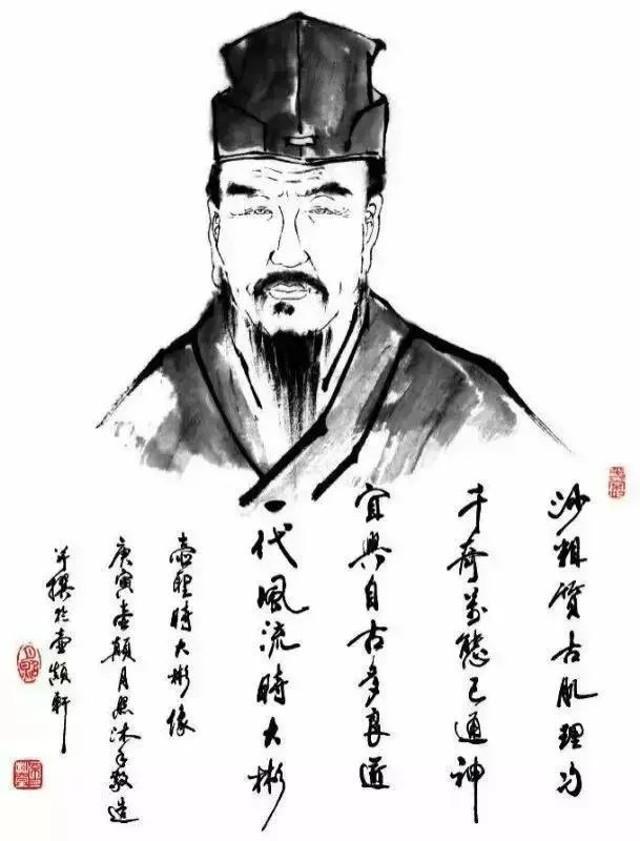 沙粗質古肌理匀
千奇万態已通神
宜興自古多良道
一代風流時大彬
壺聖時大彬像
庚寅壺顛月照沐手敬造
并撰於壺顛軒